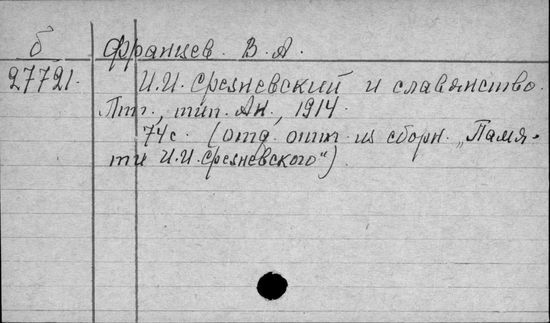 б Францев. В. А.
27721. И. И. Срезневский и славянство.
Птг., тип. Ан., 1914.
74 с. (отд. отт. из сборн. „Памя-
ти И. И. Срезневского")